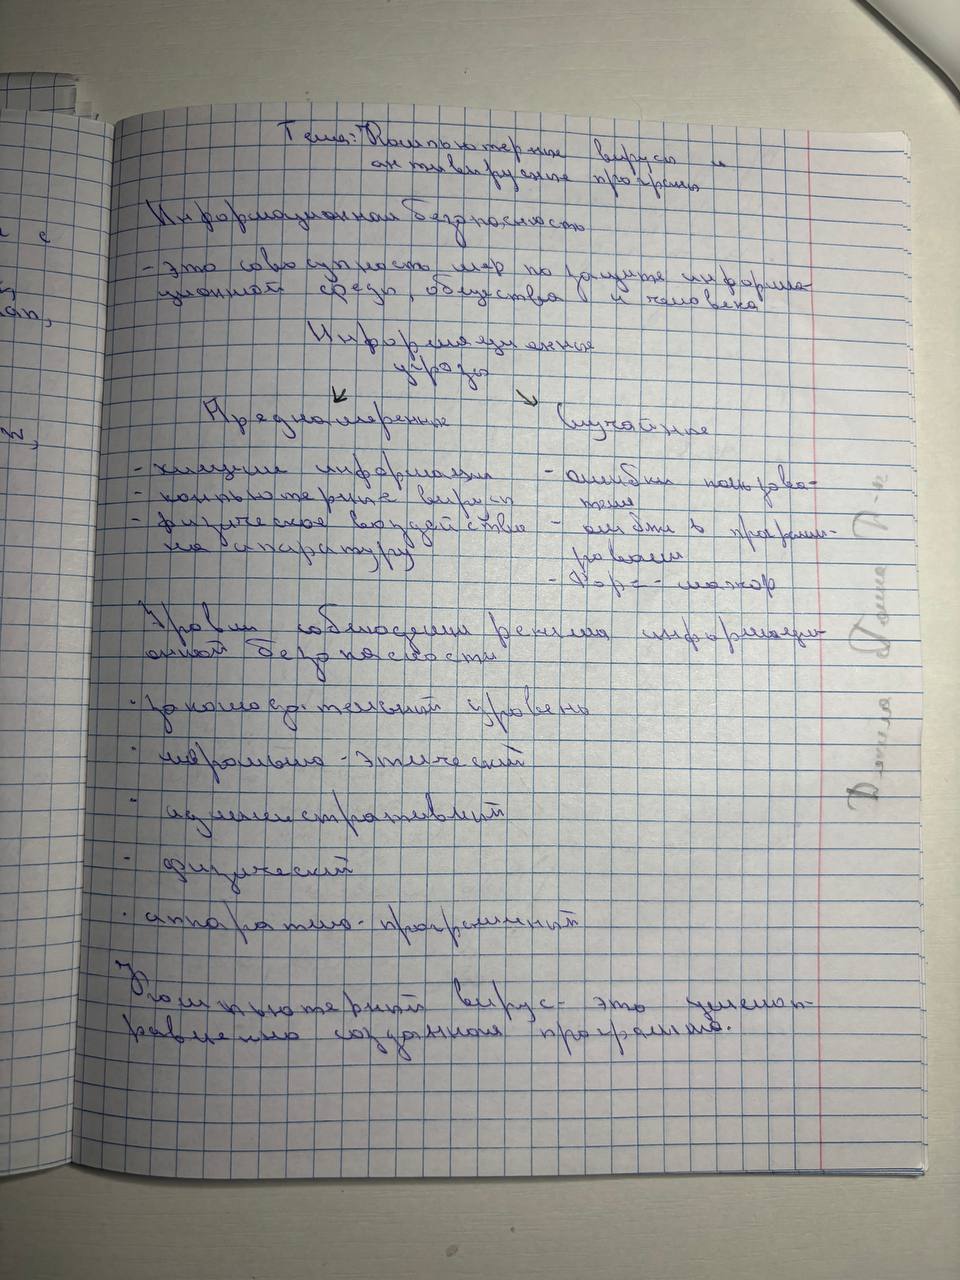 Тема: Компьютерные вирусы и
антивирусные програмы
Информационная безопасность
- это совокупность мер по защите информа-
ционной среды, общества и человека
Информационные
угрозы
Преднамеренные Случайные
- хищение информации - ошибки пользова-
- компьютерные вирусы теля
- физическое воздействие - ошибки в програми-
на аппаратуру ровании
- Форс-мажор
Уровни соблюдения режима информаци-
онной безопасности
· законодательный уровень
· морально-этический
· административный
· физический
· аппаратно-програмный
Компьютерный вирус - это целенап-
равленно созданная программа.